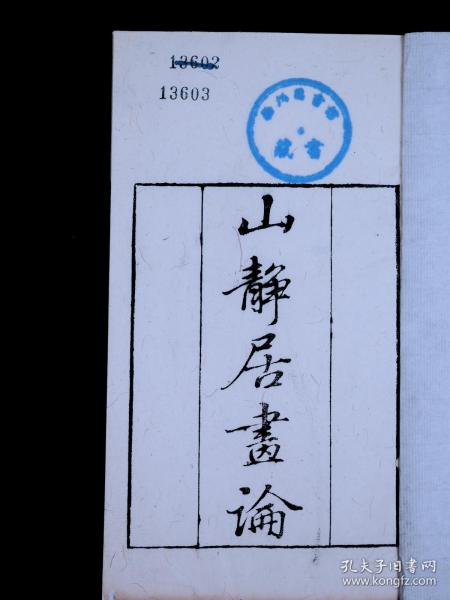 13602
13603
藏書
山靜居畫論
孔夫子旧书网
www.kongfz.com